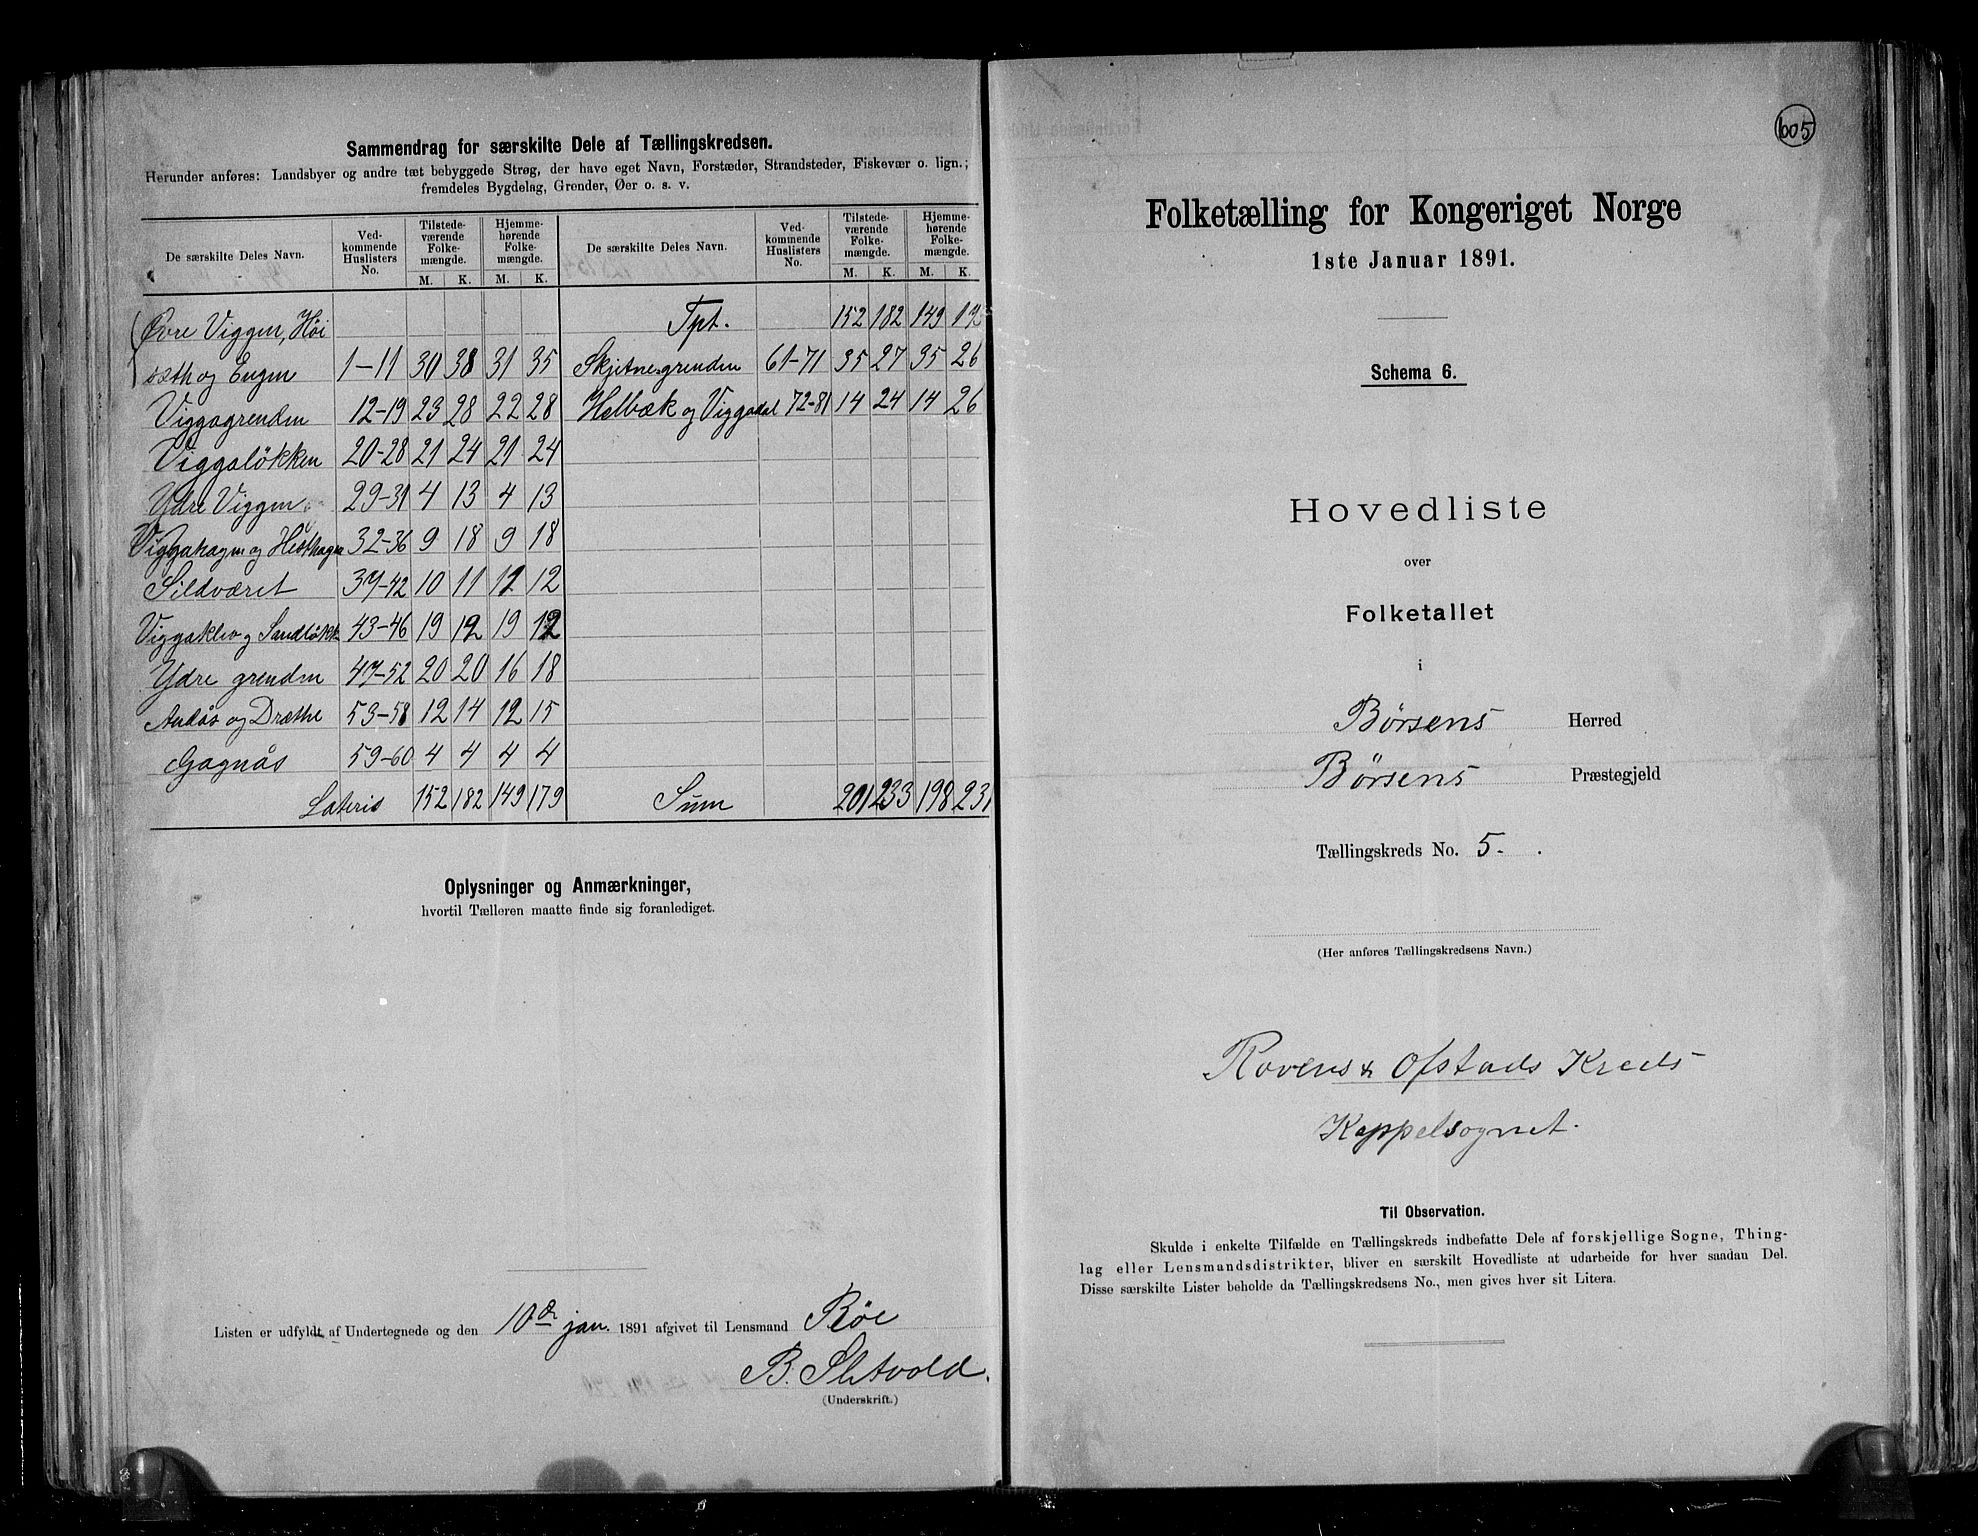 Sammendrag for særskilte Dele af Tællingskredsen.
Herunder anføres: Landsbyer og andre tæt bebyggede Strøg, der have eget Navn, Forstæder, Strandsteder, Fiskevær o. lign.;
fremdeles Bygdelag, Grender, Øer o. s. v.
De særskilte Deles Navn. Ved-kommende Huslisters No. Tilstede-værende Folke-mængde. M. K. Hjemme-hørende Folke-mængde. M. K.
Øvre Viggen, Höi
sæth og Engen 1-11 30 38 31 35
Viggagrenden 12-19 23 28 22 28
Viggaløkken 20-28 21 24 21 24
Ydre Viggen 29-31 4 13 4 13
Viggahagen og Hesthagen 32-36 9 18 9 18
Sildværet 37-42 10 11 11 12
Viggakleiv og Sandløkk 43-46 19 12 19 12
Ydre grenden 47-52 20 20 16 18
Andås og Dræthe 53-58 12 14 12 15
Gagnås 59-60 4 4 4 4
Lateris 152 182 149 179
De særskilte Deles Navn. Ved-kommende Huslisters No. Tilstede-værende Folke-mængde. M. K. Hjemme-hørende Folke-mængde. M. K.
Tpt. 152 182 149
Skjetnegrenden 61-71 35 27 35 26
Helbæk og Viggadal 72-81 14 24 14 26
Sum 201 233 198 231
Oplysninger og Anmærkninger,
hvortil Tælleren maatte finde sig foranlediget.
Listen er udfyldt af Undertegnede og den 10de jan. 1891 afgivet til Lensmand Röe
B. Sletvold.
(Underskrift.)
605
Folketælling for Kongeriget Norge
1ste Januar 1891.
Schema 6.
Hovedliste
over
Folketallet
i
Børsens Herred
Børsens Præstegjeld
Tællingskreds No. 5.
(Her anføres Tællingskredsens Navn.)
Rovens & Ofstads Kreds
Kappelsognet.
Til Observation.
Skulde i enkelte Tilfælde en Tællingskreds indbefatte Dele af forskjellige Sogne, Thing-
lag eller Lensmandsdistrikter, bliver en særskilt Hovedliste at udarbeide for hver saadan Del.
Disse særskilte Lister beholde da Tællingskredsens No., men gives hver sit Litera.